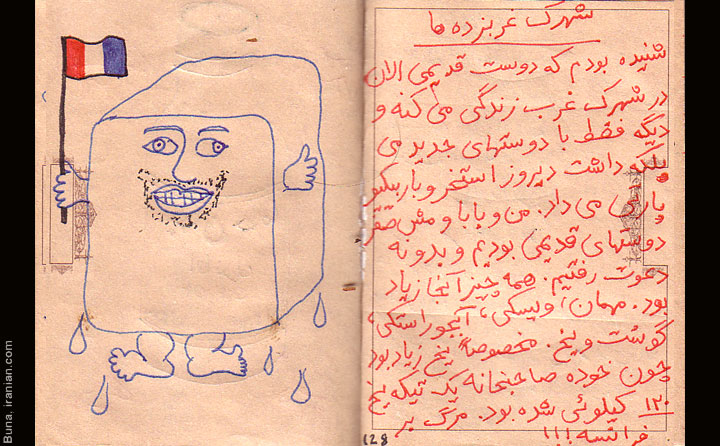 شهرک غربزده ها
شنیده بودم که دوست قدیمی الان
در شهرک غرب زندگی می کنه و
دیگه فقط با دوستهای جدید می
پلکه داشت دیروز استخر و باربیکیو
پارتی می داد. من و بابا و مش صفر
دوستهای قدیمی بودیم و بدونه
دعوت رفتیم. همه چیز آنجا زیاد
بود. مهمان، ویسکی، آبجو، استکی،
گوشت و یخ. مخصوصاً یخ زیاد بود
چون خوده صاحبخانه یک تیکه یخ
۱۲۰ کیلوئی شده بود. مرگ بر
فرانسه!!!
128
Buna, iranian.com